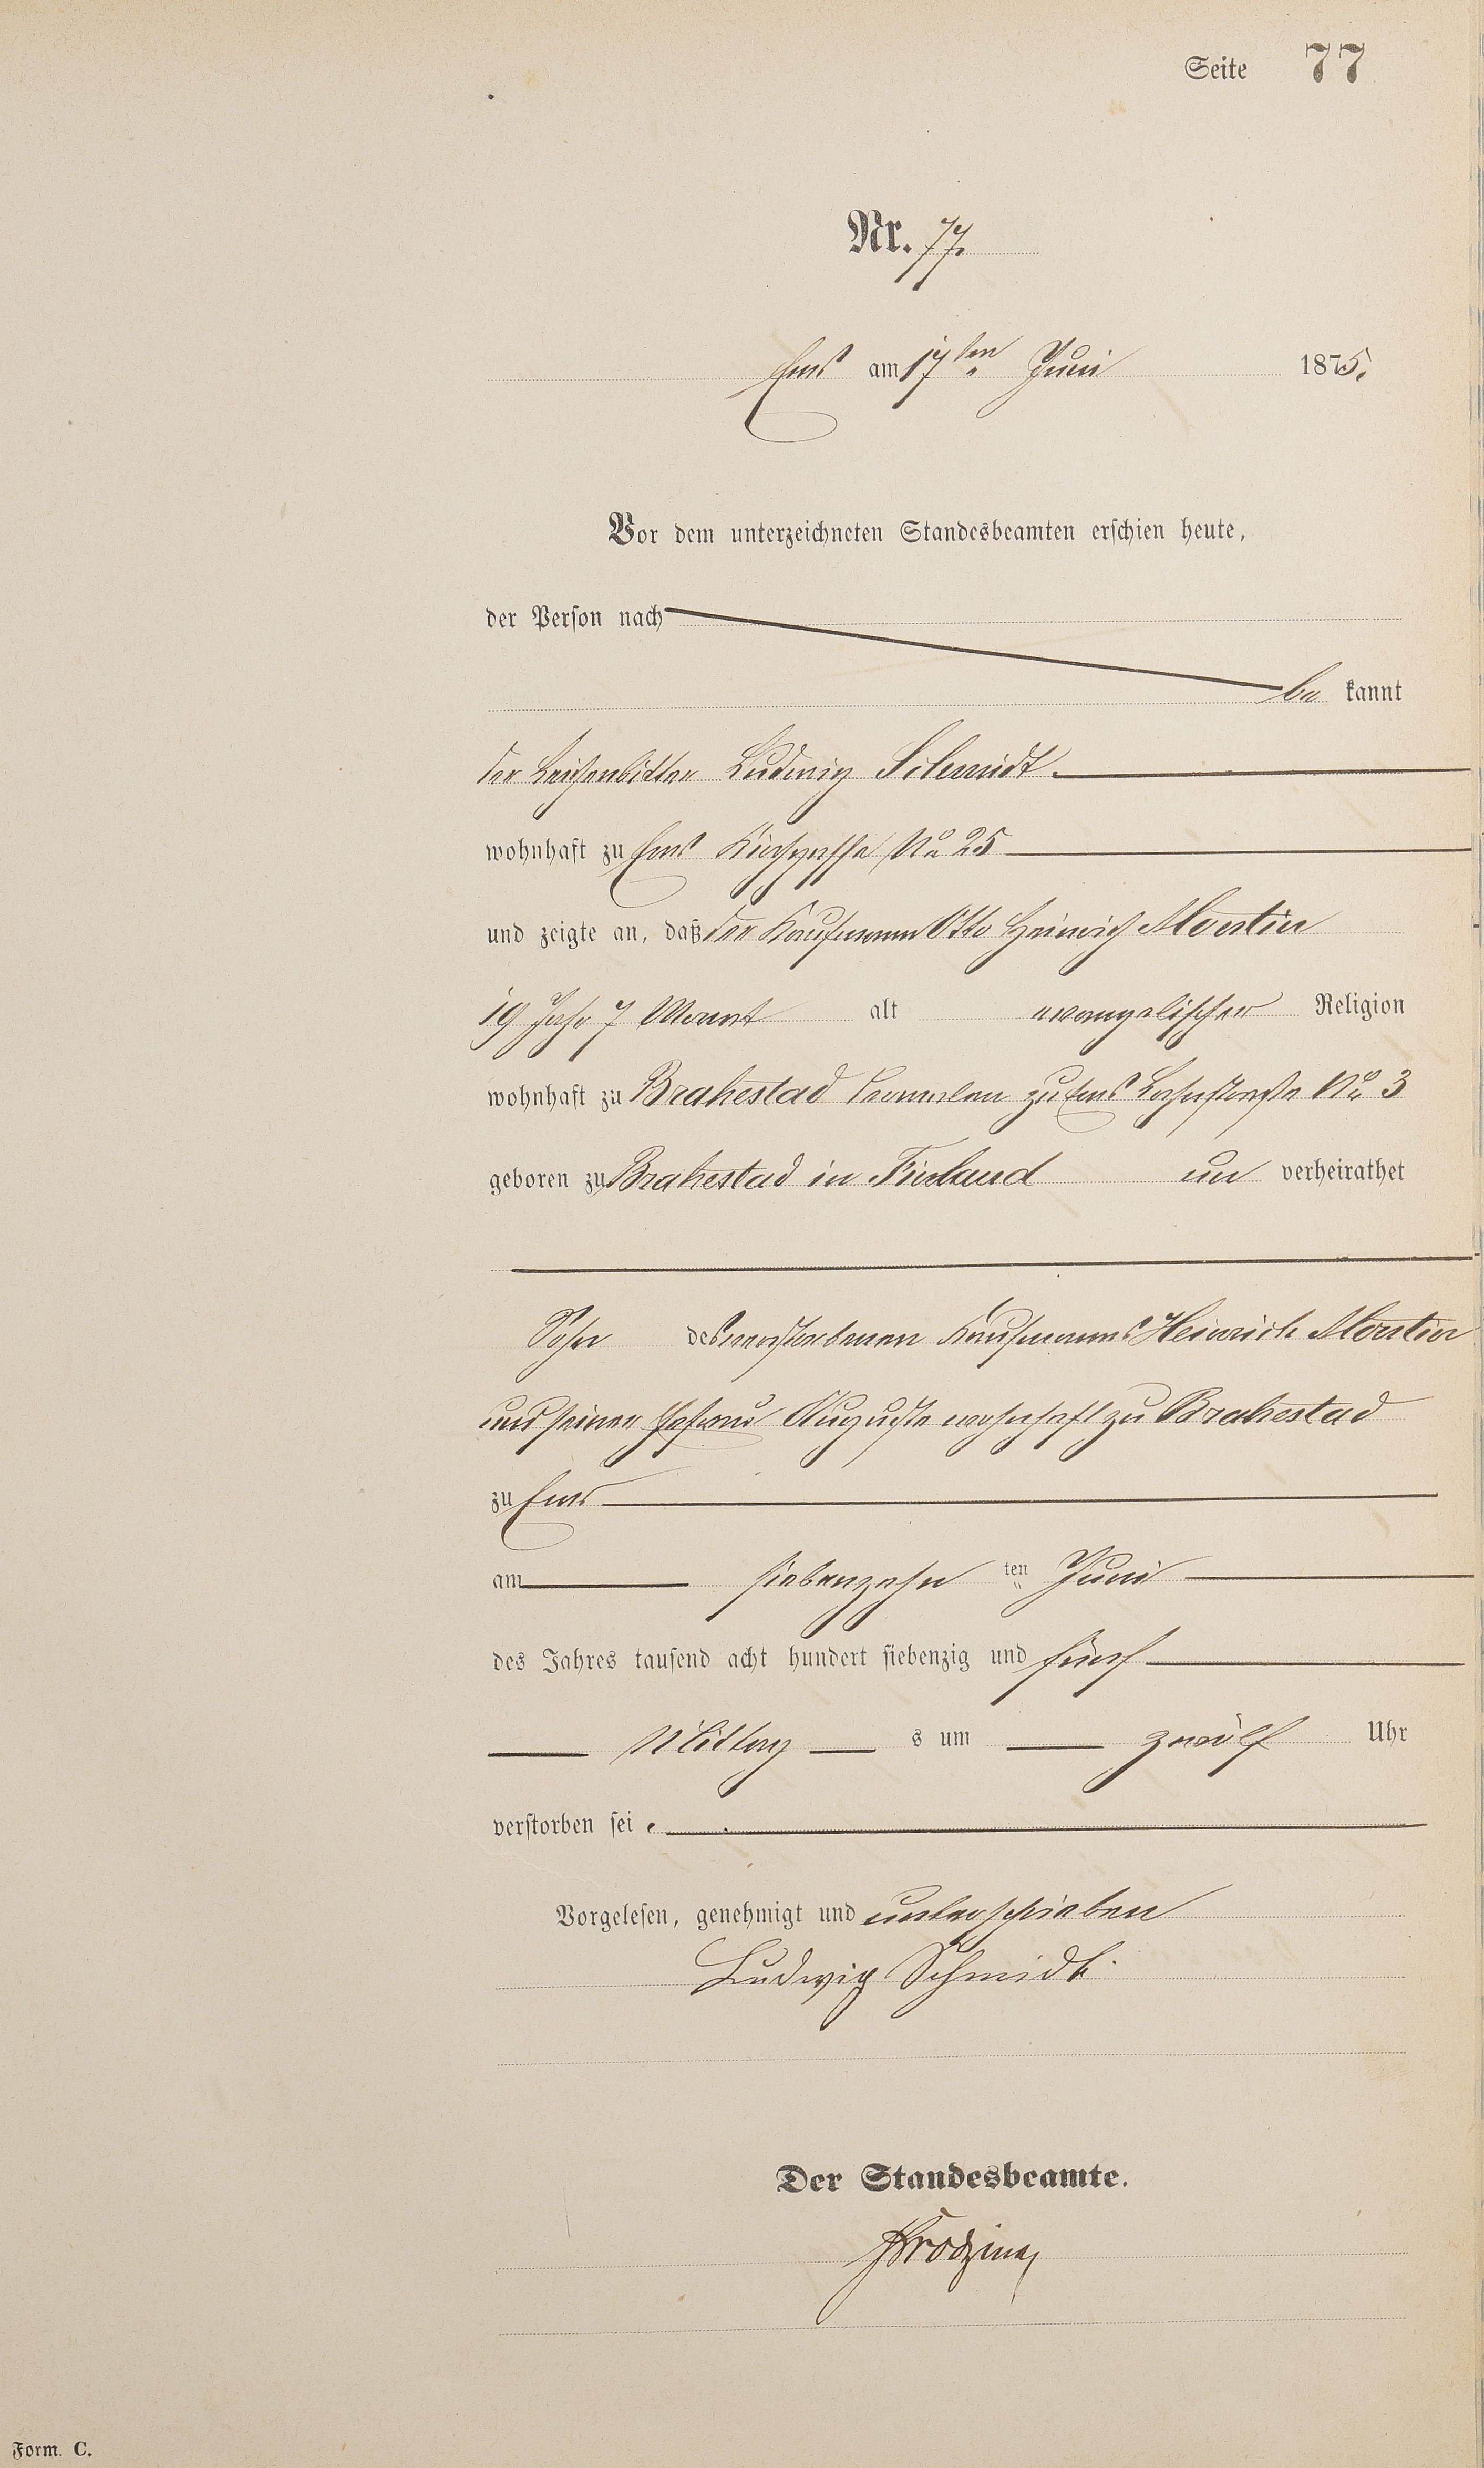 Seite 77
Nr. 77.
Ems am 17ten Juni 1875.
Vor dem unterzeichneten Standesbeamten erschien heute,
der Person nach
be kannt
der Leichenbitter Ludwig Schmidt
wohnhaft zu Ems Kirchgasse No 25
und zeigte an, daß der Kaufmann Otto Heinrich Montin
19 Jahr 7 Monat alt evangelischer Religion
wohnhaft zu Brahestad zu Ems Lahnstraße No 3
geboren zu Brahestad in Finland un verheirathet
Sohn des verstorbenen Kaufmanns Heinrich Montin
und seiner Ehefrau Auguste wohnhaft zu Brahestad
zu Ems
am siebenzehn ten Juni
des Jahres tausend acht hundert siebenzig und fünf
Mittag s um zwölf Uhr
verstorben sei.
Vorgelesen, genehmigt und unterschrieben
Ludwig Schmidt.
Der Standesbeamte.
Form. C.